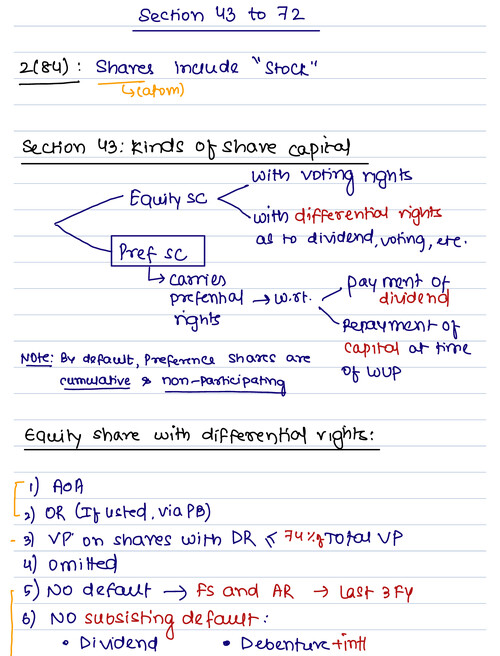 Section 43 to 72
2(84): Shares include "Stock"
(atom)
Section 43: Kinds of share capital
Equity SC
with voting rights
with differential rights
as to dividend, voting, etc.
Pref SC
carries
prefential → w.r.t.
rights
payment of
dividend
Repayment of
capital at time
of WUP
NOTE: By default, Preference shares are
cumulative & non-participating
Equity share with differential rights:
1) AOA
2) OR (If listed, via PB)
3) VP on shares with DR ≤ 74% of Total VP
4) omitted
5) NO default → FS and AR → Last 3 FY
6) NO subsisting default:
• Dividend • Debenture + int